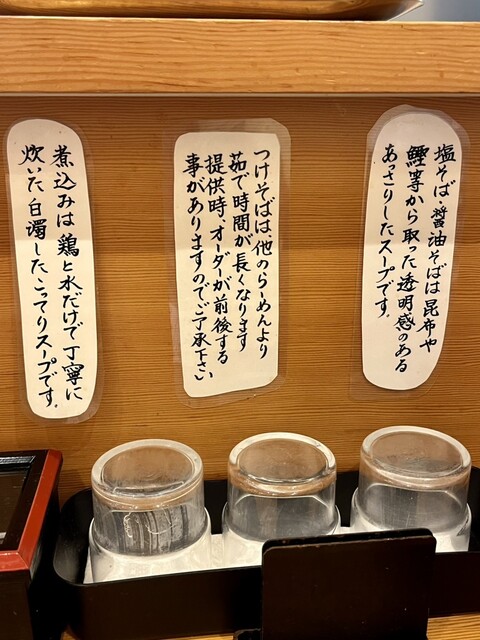 塩そば・醤油そばは昆布や
鰹等から取った透明感のある
あさりしたスープです。
つけそばは、他のらーめんより
茹で時間が長くなります
提供時、オーダーが前後する
事がありますのでご了承下さい
煮込みは鶏と水だけで丁寧に
炊いた白濁した、こってりスープです。